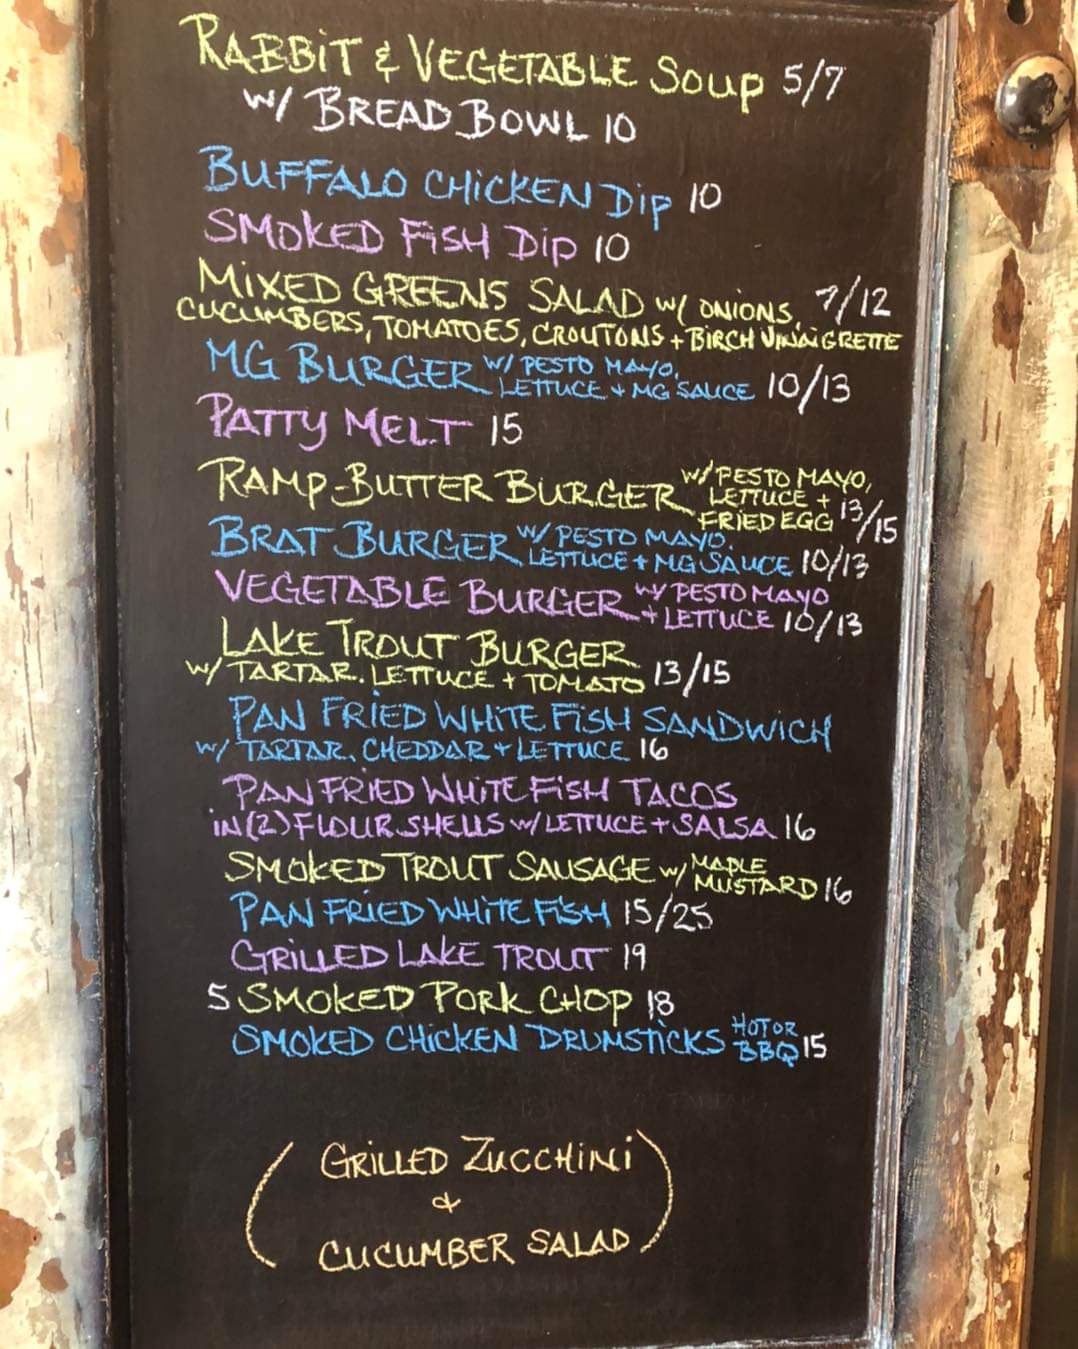 RABBIT & VEGETABLE SOUP 5/7
W/ BREAD BOWL 10
BUFFALO CHICKEN DIP 10
SMOKED FISH DIP 10
MIXED GREENS SALAD W/ ONIONS, 7/12
CUCUMBERS, TOMATOES, CROUTONS + BIRCH VINAIGRETTE
MG BURGER W/ PESTO MAYO,
LETTUCE + MG SAUCE 10/13
PATTY MELT 15
RAMP-BUTTER BURGER W/ PESTO MAYO,
LETTUCE +
FRIED EGG 13/15
BRAT BURGER W/ PESTO MAYO,
LETTUCE + MG SAUCE 10/13
VEGETABLE BURGER W/ PESTO MAYO
+ LETTUCE 10/13
LAKE TROUT BURGER
W/ TARTAR, LETTUCE + TOMATO 13/15
PAN FRIED WHITE FISH SANDWICH
W/ TARTAR, CHEDDAR + LETTUCE 16
PAN FRIED WHITE FISH TACOS
IN (2) FLOUR SHELLS W/ LETTUCE + SALSA 16
SMOKED TROUT SAUSAGE W/ MAPLE
MUSTARD 16
PAN FRIED WHITE FISH 15/25
GRILLED LAKE TROUT 19
5 SMOKED PORK CHOP 18
SMOKED CHICKEN DRUMSTICKS HOT OR
BBQ 15
(GRILLED ZUCCHINI
&
CUCUMBER SALAD)